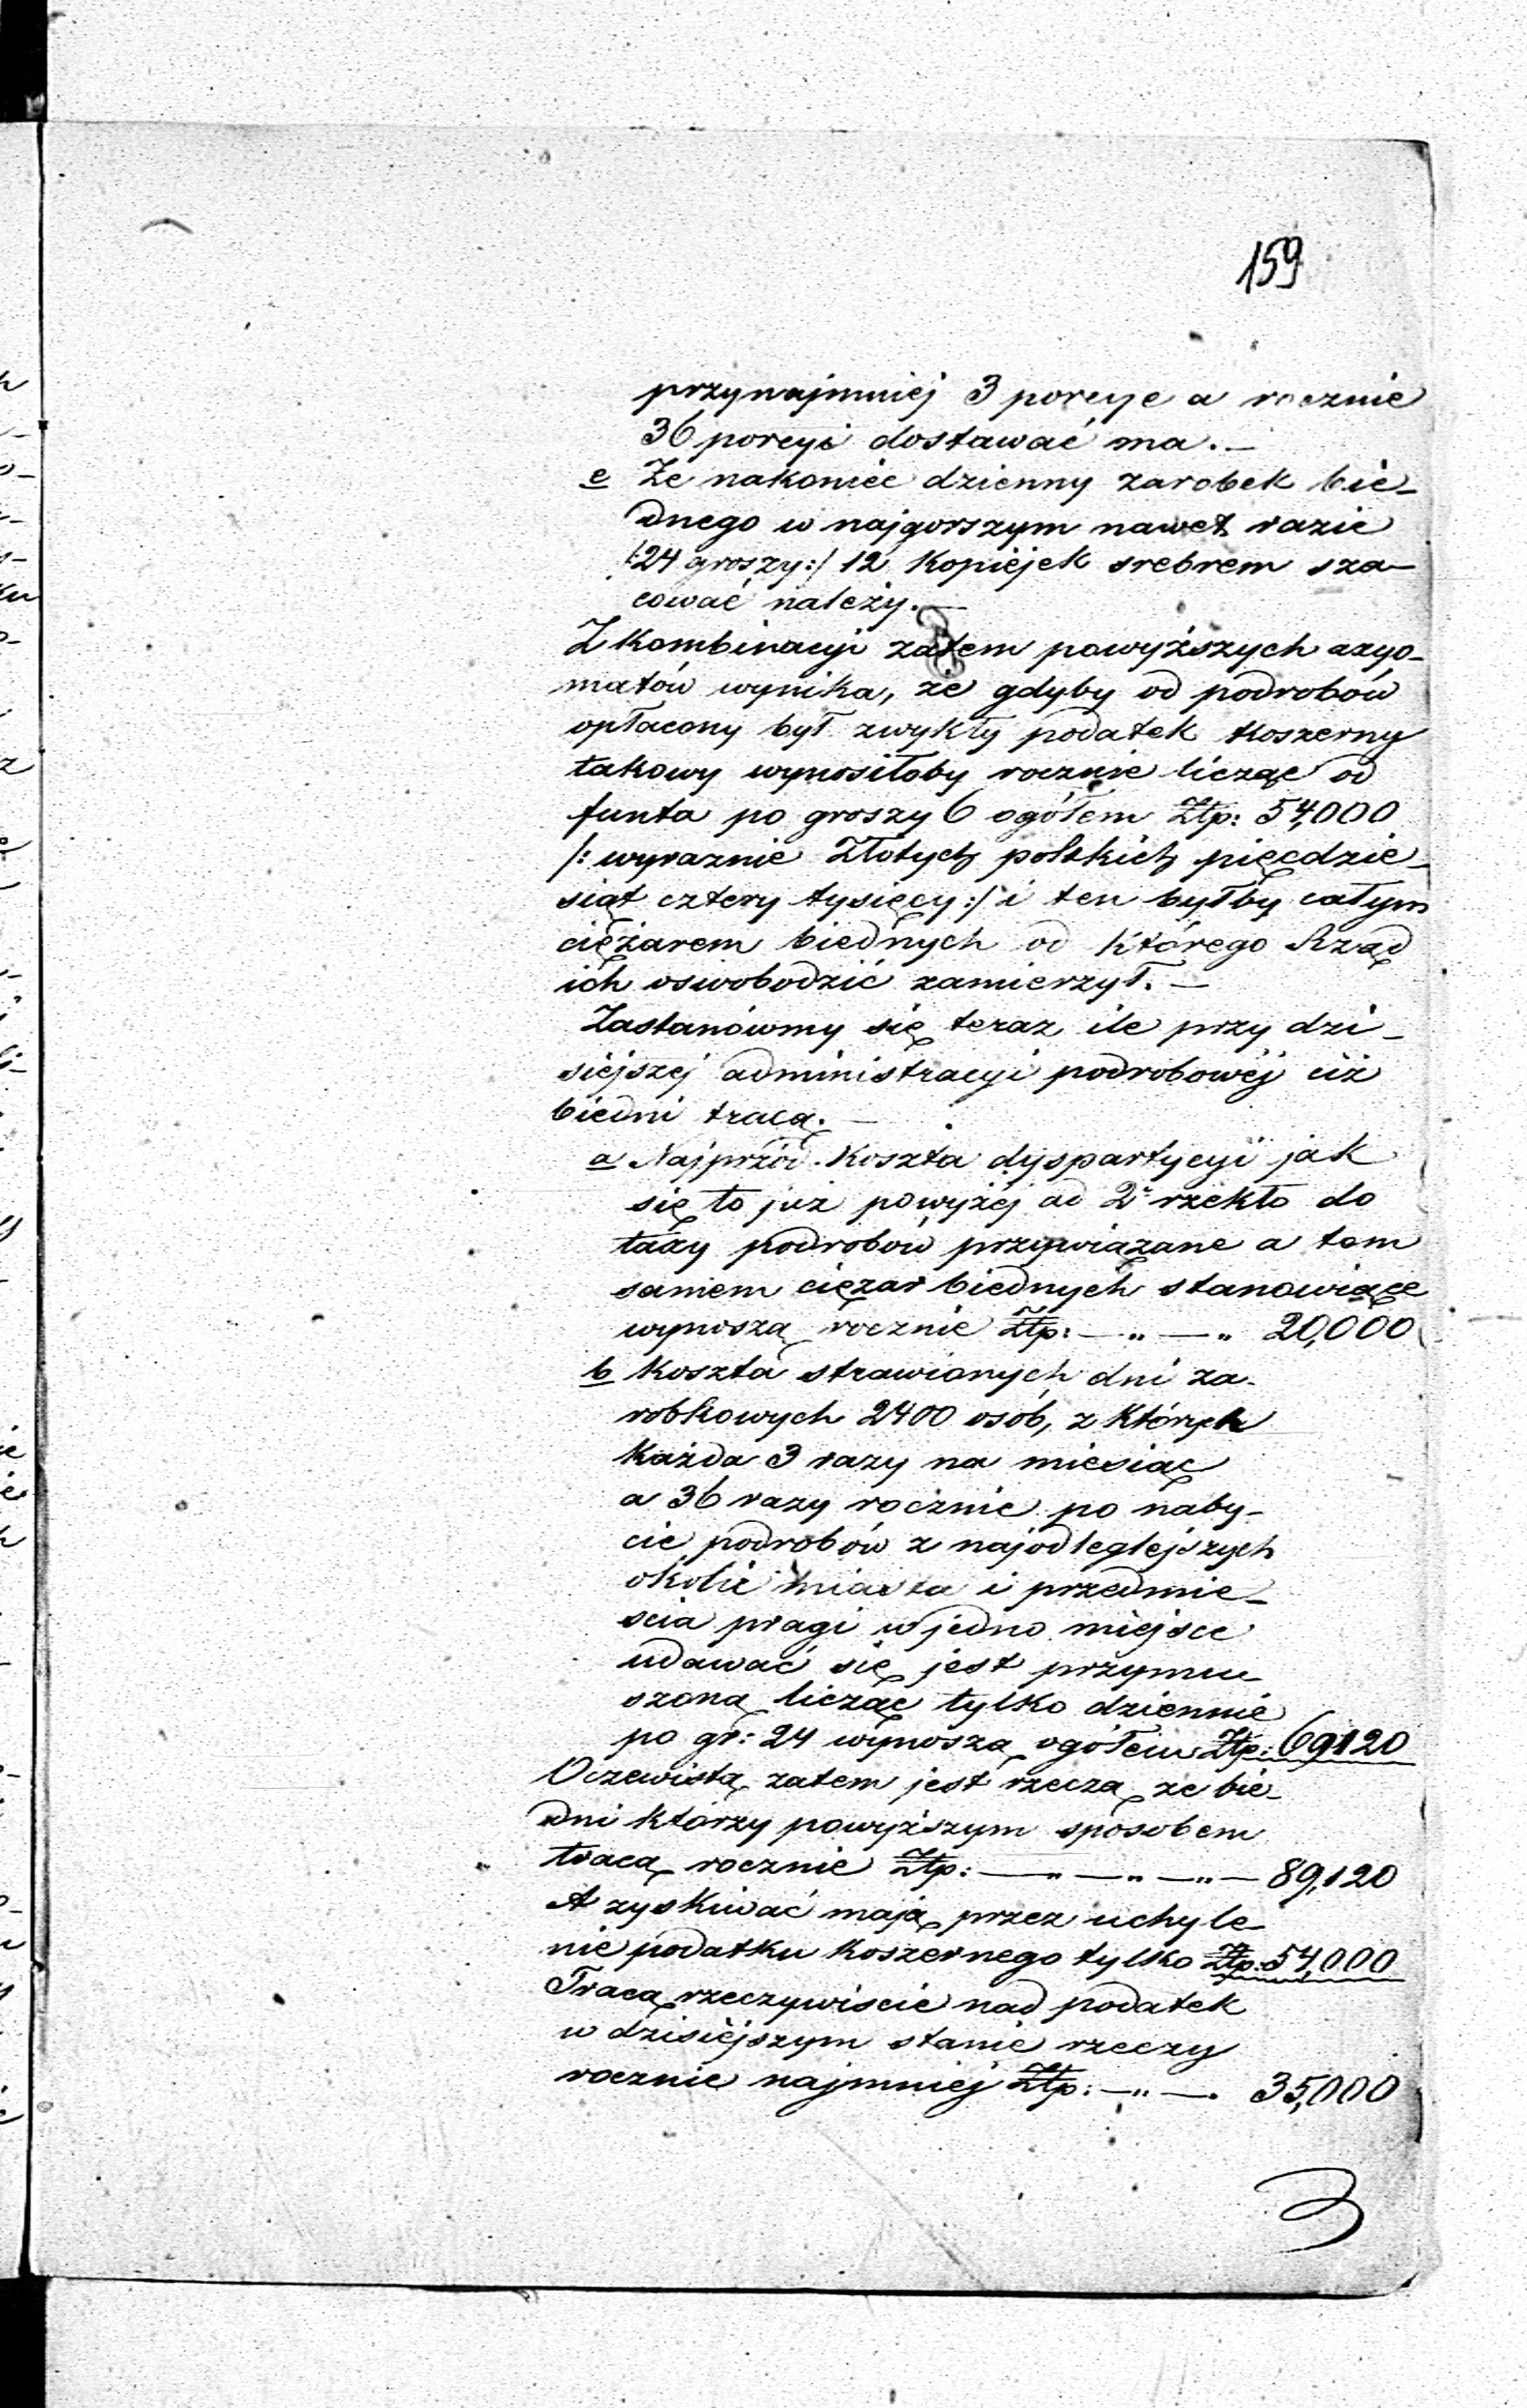 159
przynajmniej 3 porcye a rocznie
36 porcyi dostawać ma. —
e Że nakoniec dzienny zarobek bie-
dnego w najgorszym nawet razie
/:24 groszy:/ 12 kopiejek srebrem sza-
cować należy. —
Z kombinacyi zatem powyższych axyo-
matów wynika, że gdyby od podrobów
opłacony był zwykły podatek koszerny
takowy wynosiłoby rocznie licząc od
funta po groszy 6 ogółem Złp: 54,000
/: wyraznie Złotych polskich pięćdzie-
siąt cztery tysięcy :/ i ten byłby całym
ciężarem biednych od którego Rząd
ich oswobodzić zamierzył. —
Zastanówmy się teraz ile przy dzi-
siejszej administracyi podrobowéj ciż
biedni tracą. —
a Najprzód. Koszta dyspartycyi jak
się to już powyżéj ad 2º rzekło do
taxy podrobów przywiązane a tem
samem ciężar biednych stanowiące
wynoszą rocznie Złp: — „ — „ 20,000
b Koszta strawionych dni za-
robkowych 2400 osób, z których
każda 3 razy na miesiąc
a 36 razy rocznie po naby-
cie podrobów z najodleglejszych
okolic miasta i przedmie-
scia pragi w jedno miejsce
udawać się jest przymu-
szoną licząc tylko dziennie
po gr: 24 wynoszą ogółem Złp: 69120
Oczewistą zatem jest rzeczą że bie-
dni którzy powyższym sposobem
tracą rocznie Złp: — „ — „ — „ — 89,120
A zyskiwać mają przez uchyle-
nie podatku koszernego tylko Złp: 54,000
Tracą rzeczywiscie nad podatek
w dzisiéjszym stanie rzeczy
rocznie najmniéj Złp: — „ — . 35,000